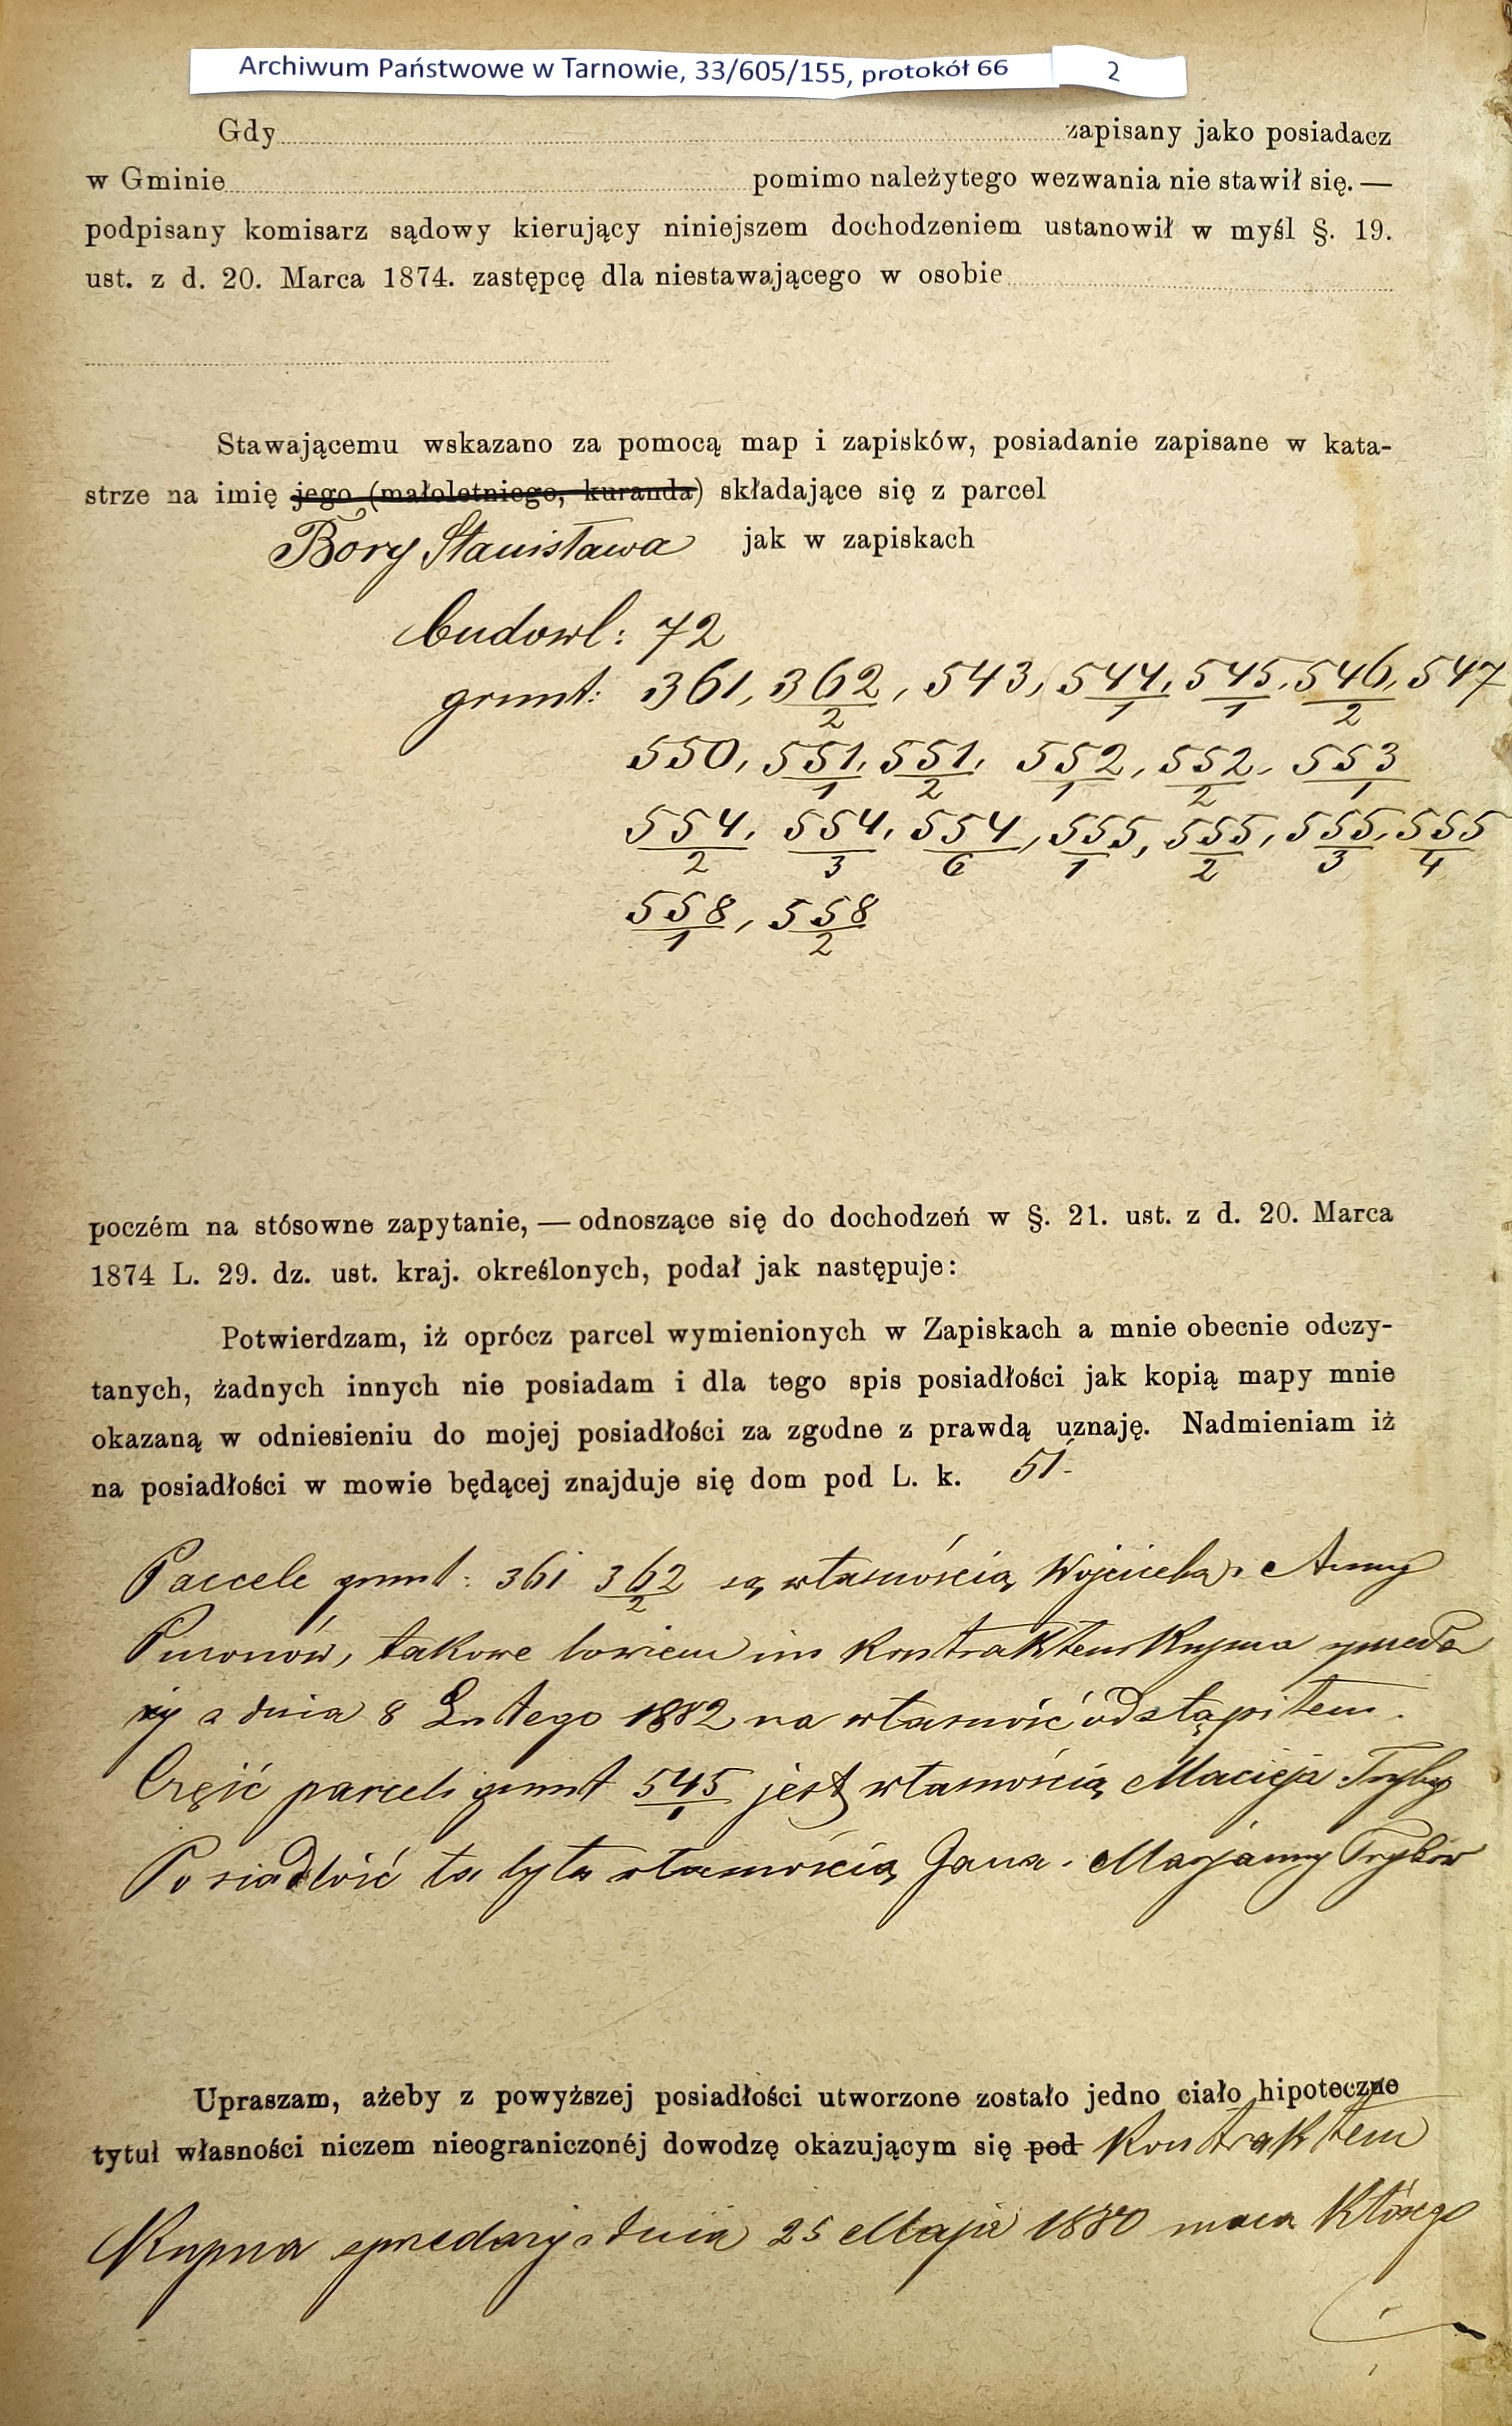 Archiwum Państwowe w Tarnowie, 33/605/155, protokół 66 2
Gdy zapisany jako posiadacz
w Gminie pomimo należytego wezwania nie stawił się. —
podpisany komisarz sądowy kierujący niniejszem dochodzeniem ustanowił w myśl §. 19.
ust. z d. 20. Marca 1874. zastępcę dla niestawającego w osobie
Stawającemu wskazano za pomocą map i zapisków, posiadanie zapisane w kata-
strze na imię jego (małoletniego, kuranda) składające się z parcel
Bory Stanisława jak w zapiskach
budowl: 72
grunt: 361, 362/2, 543, 544/1, 545/1, 546/2, 547
550, 551/1, 551/2, 552/1, 552/2, 553/1
554/2, 554/3, 554/6, 555/1, 555/2, 555/3, 555/4
558/1, 558/2
poczém na stósowne zapytanie, — odnoszące się do dochodzeń w §. 21. ust. z d. 20. Marca
1874 L. 29. dz. ust. kraj. określonych, podał jak następuje:
Potwierdzam, iż oprócz parcel wymienionych w Zapiskach a mnie obecnie odczy-
tanych, żadnych innych nie posiadam i dla tego spis posiadłości jak kopią mapy mnie
okazaną w odniesieniu do mojej posiadłości za zgodne z prawdą uznaję. Nadmieniam iż
na posiadłości w mowie będącej znajduje się dom pod L. k. 51-
Parcele grunt: 361 362/2 są własnością Wojciecha i Anny
takowe bowiem im kontraktem Kupna sprzeda
ży z dnia 8 Lutego 1882 na własność odstąpiłem.
Część parceli grunt 545/1 jest własnością Macieja Tryby
Posiadłość ta była własnością Jana i Maryanny Trybów
Upraszam, ażeby z powyższej posiadłości utworzone zostało jedno ciało hipoteczne
tytuł własności niczem nieograniczonéj dowodzę okazującym się pod Kontraktem
Kupna sprzedaży z dnia 25 Maja 1880 moca którego